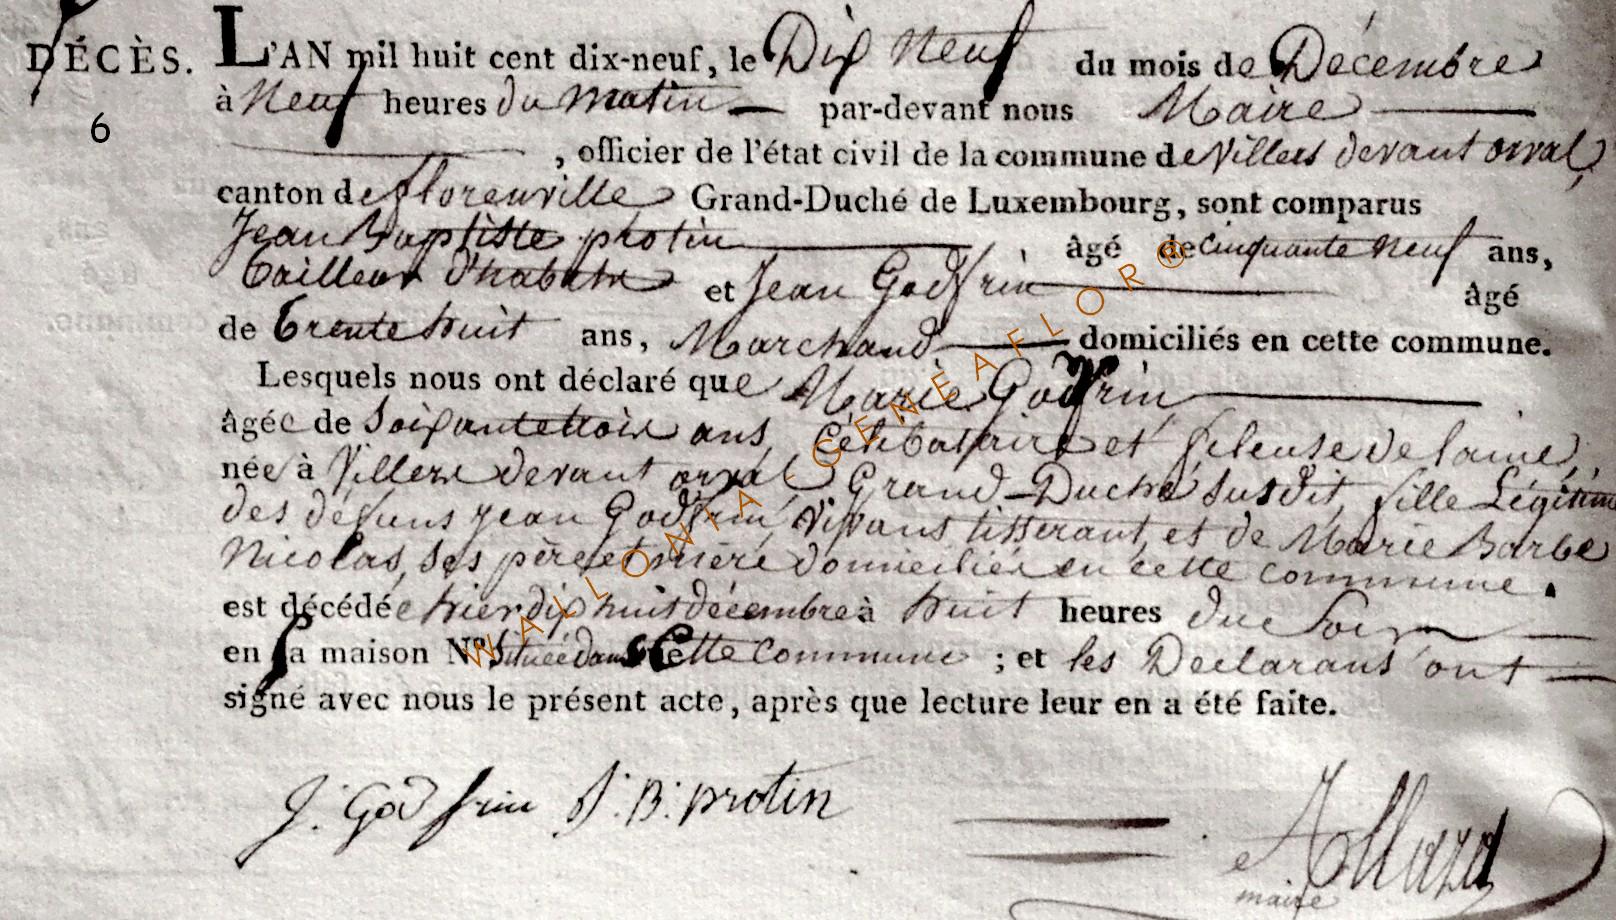 DÉCÈS.
6
L'AN mil huit cent dix-neuf, le Dix Neuf du mois de Décembre
à Neuf heures du matin par-devant nous Maire
, officier de l'état civil de la commune de Villers devant orval,
canton de florenville Grand-Duché de Luxembourg, sont comparus
Jean Baptiste protin âgé de cinquante neuf ans,
tailleur d'habits et Jean Godfrin âgé
de trente huit ans, Marchand domiciliés en cette commune.
Lesquels nous ont déclaré que Marie Godfrin
âgée de Soixante trois ans, Célibataire et fileuse de laine,
née à Villers devant orval Grand-Duché susdit, fille Légitime
des defuns jean Godfrin, vivant tisserant, et de Marie Barbe
Nicolas, Ses père et mère domiciliés en cette commune.
est décédée hier dix huit décembre à huit heures du Soir
en sa maison No située dans Cette commune ; et les Declarans ont
signé avec nous le présent acte, après que lecture leur en a été faite.
J. Godfrin J. B. protin
maire
WALLONIA-GENEAFLOR®